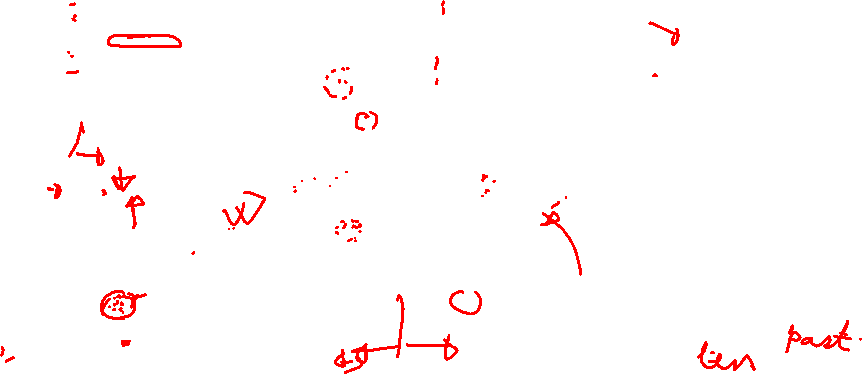 ten past.